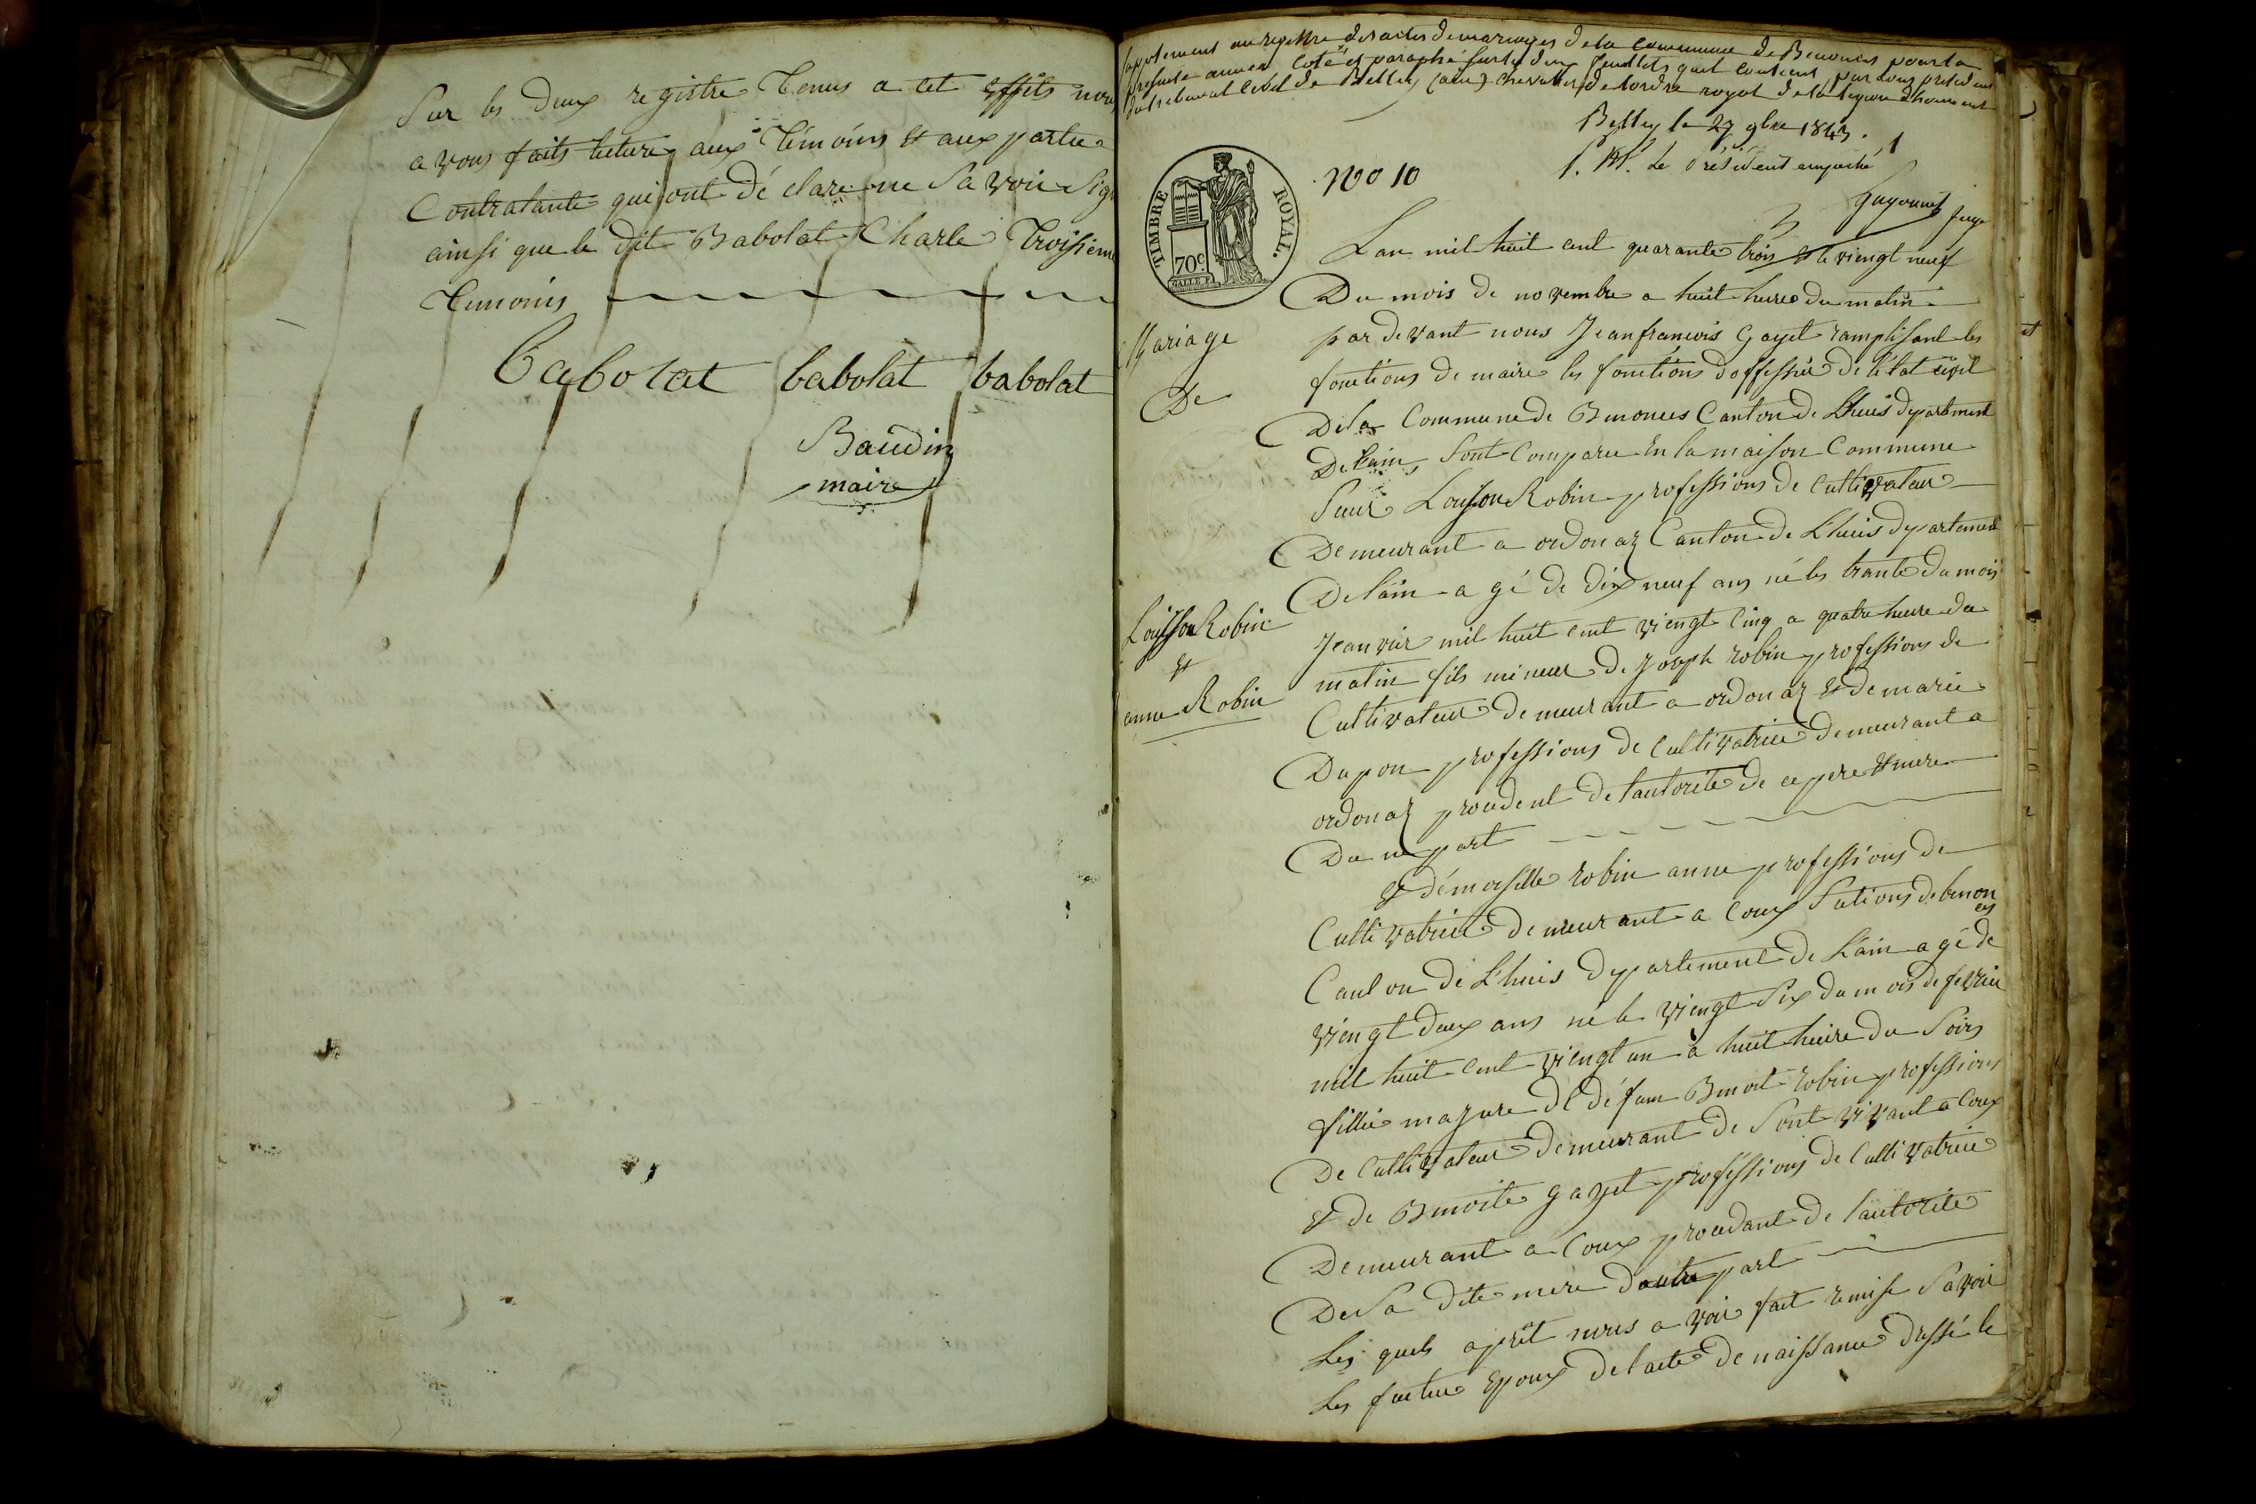 Sur les deux registre Tenus a cet effets nous
a vons faits lecture aux Témoins & aux partie
Contratante qui ont dé clare ne Sa voir Sig
ainsi que le dit Babolat Charle Troisieme
Temoins
Babolat babolat babolat
Baudin
maire
Suplement au registre des actes de mariages de la commune de Benonces pour la
presente annee coté et paraphé sur les deux feuillets quil contient, par nous president
du tribunal civil de Belley (ain) chevalier de lordre royal de la legion dhonneur
Belley le 27 9bre 1843.
P. M. le Président empeché
Guyonnet juge
TIMBRE ROYAL.
70c
GALLE F.
No 10
Lan mil huit cent quarante trois & le viengt neuf
Du mois de novembre a huit heures du matin
par de vant nous Jeanfrancois Gayet ramplisant les
Mariage
fonctions de maire les fonctions doffessiée de létat civil
De
De la Commune de Benonces Canton de Lhuis departement
De lain, Sont Comparu En la maison Commune
Sieur Louison Robin professions de Cultivateur
De meurant a ordonaz Canton de Lhuis departement
De lain a gé de dix neuf ans né les trante du mois
Louison Robin
&
anne Robin
Jeanvier mil huit cent viengt Cinq a quatre heure du
matin fils mineur de Joseph robin professions de
Cultivateur de meurant a ordonaz & de marie
Dupon professions de Cultivatrice demeurant a
ordonaz procedent de lautorite de ce pere & mere
Du ne part
& démoiselle robin anne professions de
Cultivatrice de meurant a Coux Sections de benon
ces
Cant on de Lhuis departement de Lain a gé de
viengt deux ans né le viengt Six du m ois de fevrier
mil huit cent viengt un a huit heure du Soirs
fillie majure de défun Benoit robin professions
De Cultivateur demeurant de Sont vivant a Coux
& de Benoite gayet professions de Cultivatrice
Demeurant a Coux procedant de l'autorite
De Sa dite mere dautre part
Les quels aprêt nous a voir fait remise Savoir
Les future Epoux de lacte de naissance dressé le